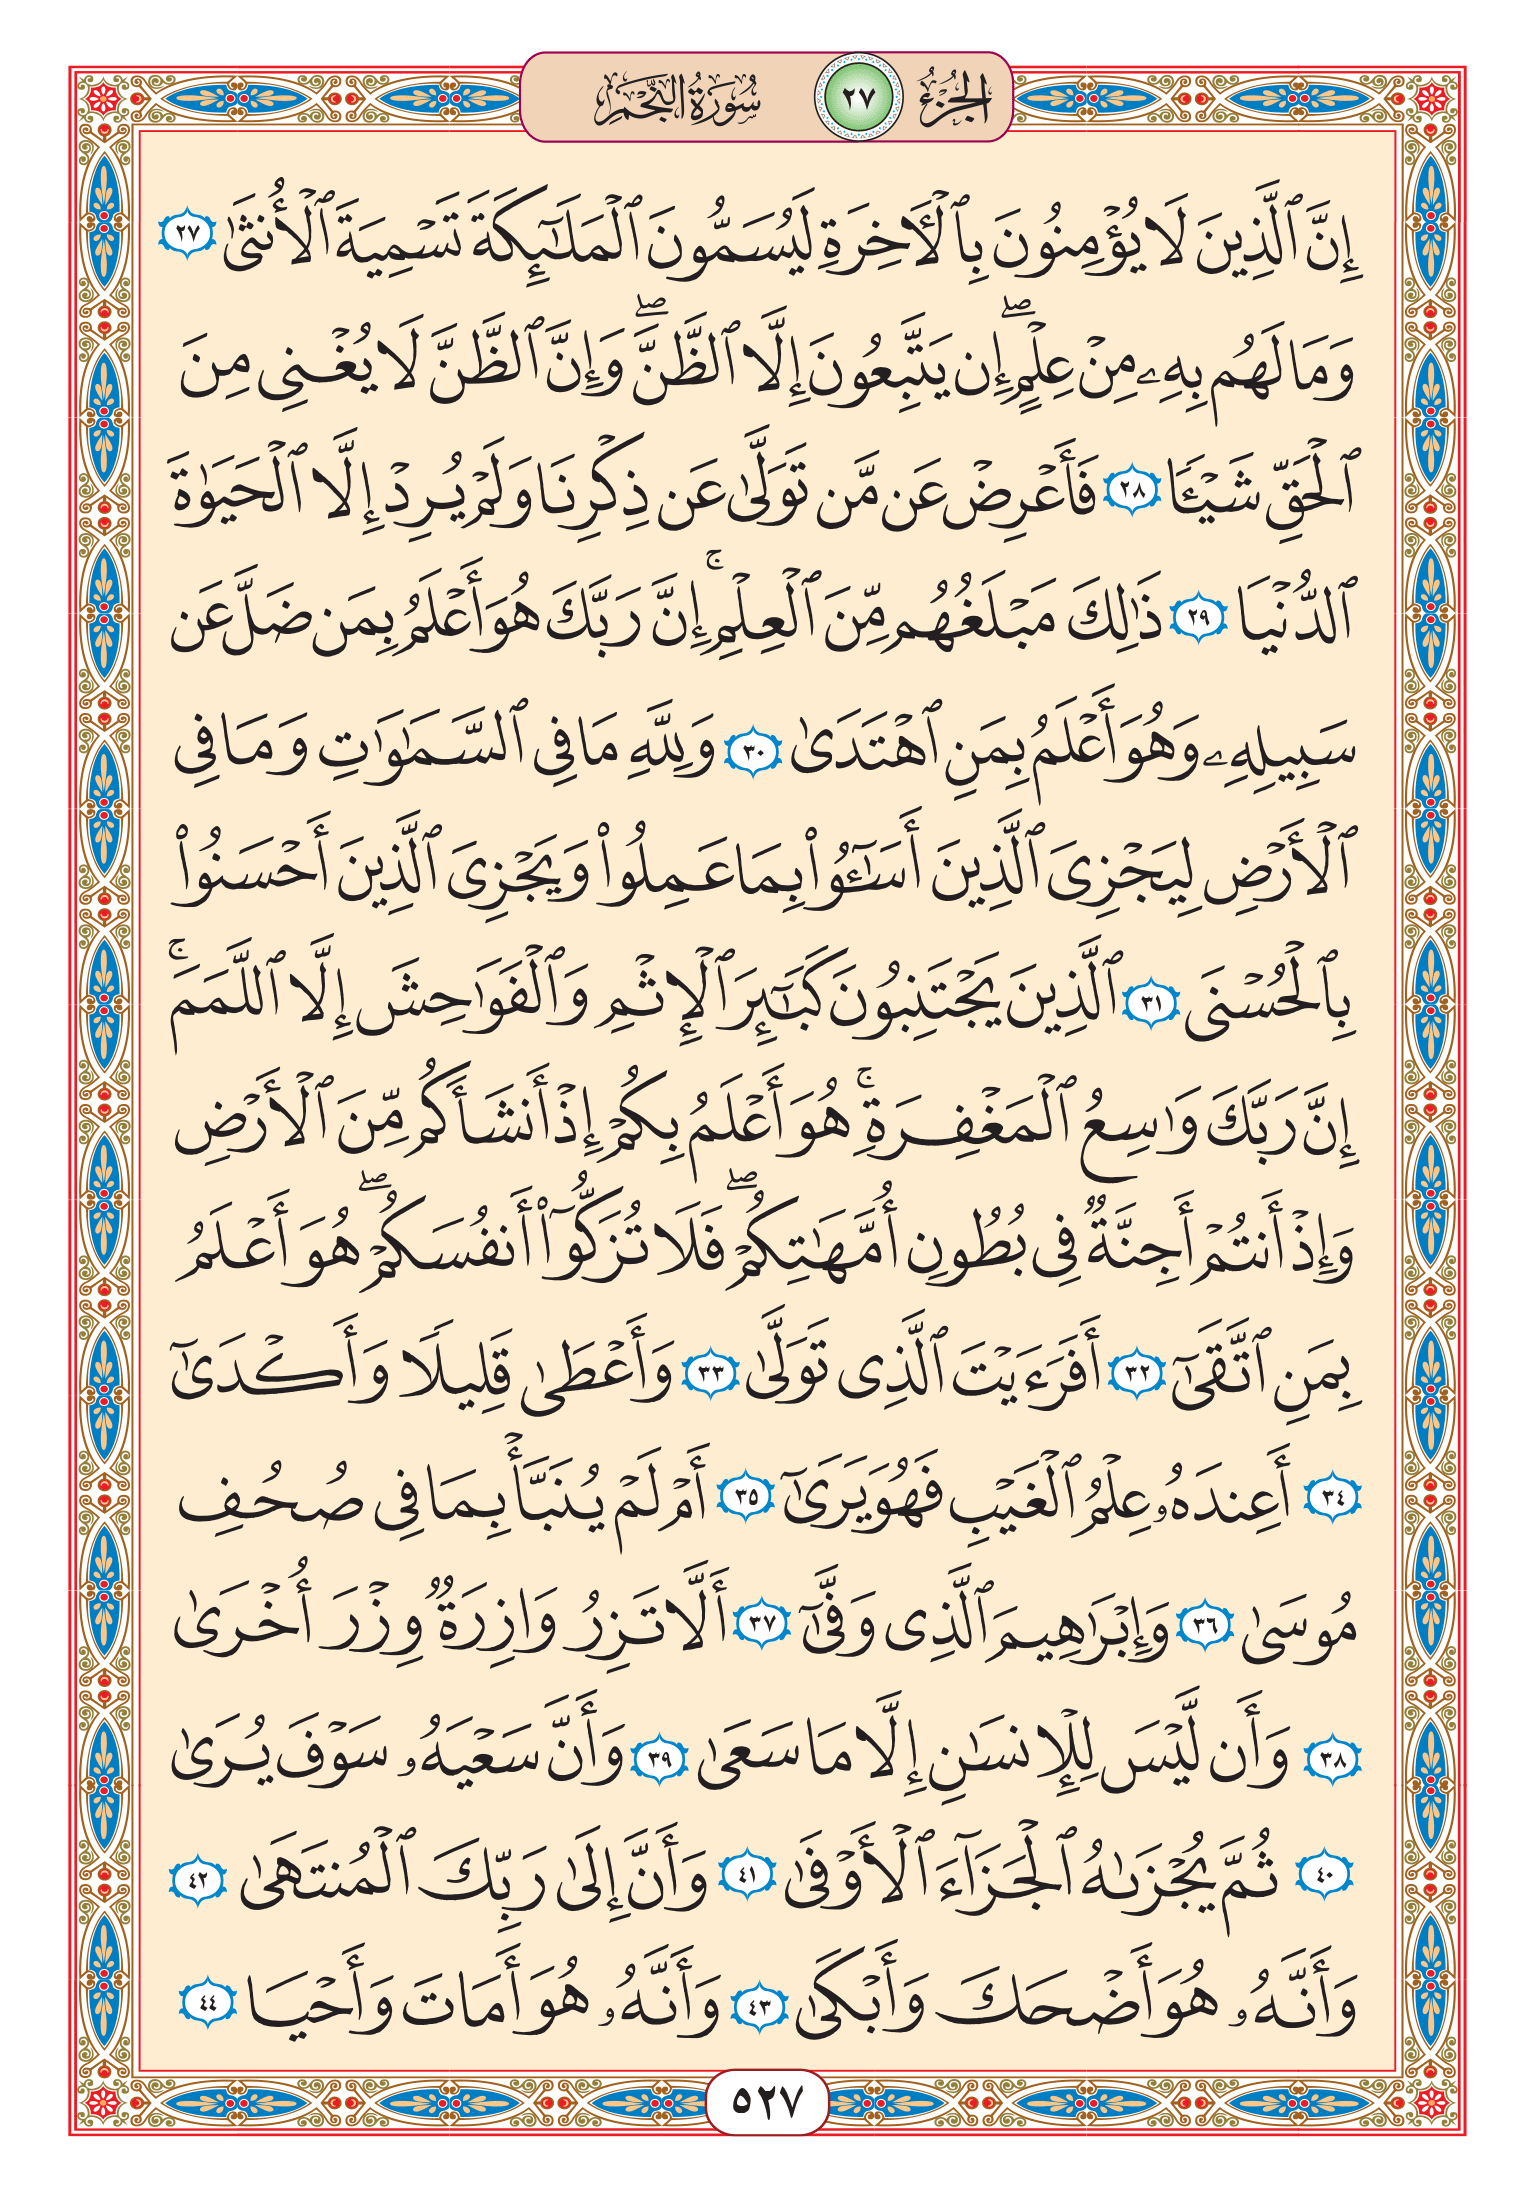 الجزء ٢٧ سورة النجم
إِنَّ ٱلَّذِينَ لَا يُؤْمِنُونَ بِٱلْأَخِرَةِ لَيُسَمُّونَ ٱلْمَلَـٰٓئِكَةَ تَسْمِيَةَ ٱلْأُنثَىٰ ٢٧
وَمَا لَهُم بِهِۦ مِنْ عِلْمٍ ۖ إِن يَتَّبِعُونَ إِلَّا ٱلظَّنَّ ۖ وَإِنَّ ٱلظَّنَّ لَا يُغْنِى مِنَ
ٱلْحَقِّ شَيْـًٔا ٢٨ فَأَعْرِضْ عَن مَّن تَوَلَّىٰ عَن ذِكْرِنَا وَلَمْ يُرِدْ إِلَّا ٱلْحَيَوٰةَ
ٱلدُّنْيَا ٢٩ ذَٰلِكَ مَبْلَغُهُم مِّنَ ٱلْعِلْمِ ۚ إِنَّ رَبَّكَ هُوَ أَعْلَمُ بِمَن ضَلَّ عَن
سَبِيلِهِۦ وَهُوَ أَعْلَمُ بِمَنِ ٱهْتَدَىٰ ٣٠ وَلِلَّهِ مَا فِى ٱلسَّمَـٰوَٰتِ وَمَا فِى
ٱلْأَرْضِ لِيَجْزِىَ ٱلَّذِينَ أَسَـٰٓـُٔوا۟ بِمَا عَمِلُوا۟ وَيَجْزِىَ ٱلَّذِينَ أَحْسَنُوا۟
بِٱلْحُسْنَى ٣١ ٱلَّذِينَ يَجْتَنِبُونَ كَبَـٰٓئِرَ ٱلْإِثْمِ وَٱلْفَوَٰحِشَ إِلَّا ٱللَّمَمَ ۚ
إِنَّ رَبَّكَ وَٰسِعُ ٱلْمَغْفِرَةِ ۚ هُوَ أَعْلَمُ بِكُمْ إِذْ أَنشَأَكُم مِّنَ ٱلْأَرْضِ
وَإِذْ أَنتُمْ أَجِنَّةٌ فِى بُطُونِ أُمَّهَـٰتِكُمْ ۖ فَلَا تُزَكُّوٓا۟ أَنفُسَكُمْ ۖ هُوَ أَعْلَمُ
بِمَنِ ٱتَّقَىٰٓ ٣٢ أَفَرَءَيْتَ ٱلَّذِى تَوَلَّىٰ ٣٣ وَأَعْطَىٰ قَلِيلًا وَأَكْدَىٰٓ
٣٤ أَعِندَهُۥ عِلْمُ ٱلْغَيْبِ فَهُوَ يَرَىٰٓ ٣٥ أَمْ لَمْ يُنَبَّأْ بِمَا فِى صُحُفِ
مُوسَىٰ ٣٦ وَإِبْرَٰهِيمَ ٱلَّذِى وَفَّىٰٓ ٣٧ أَلَّا تَزِرُ وَازِرَةٌ وِزْرَ أُخْرَىٰ
٣٨ وَأَن لَّيْسَ لِلْإِنسَـٰنِ إِلَّا مَا سَعَىٰ ٣٩ وَأَنَّ سَعْيَهُۥ سَوْفَ يُرَىٰ
٤٠ ثُمَّ يُجْزَىٰهُ ٱلْجَزَآءَ ٱلْأَوْفَىٰ ٤١ وَأَنَّ إِلَىٰ رَبِّكَ ٱلْمُنتَهَىٰ ٤٢
وَأَنَّهُۥ هُوَ أَضْحَكَ وَأَبْكَىٰ ٤٣ وَأَنَّهُۥ هُوَ أَمَاتَ وَأَحْيَا ٤٤
٥٢٧